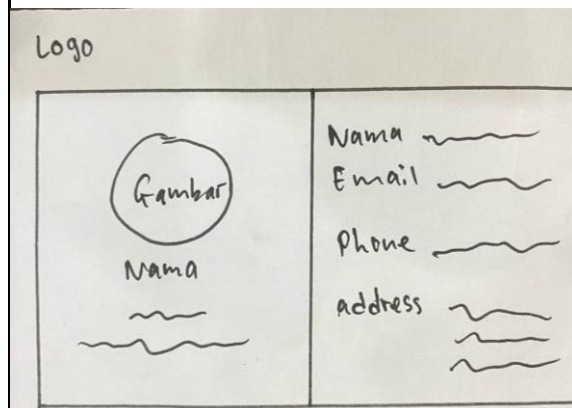 Logo
Gambar
Nama
Nama
Email
Phone
address